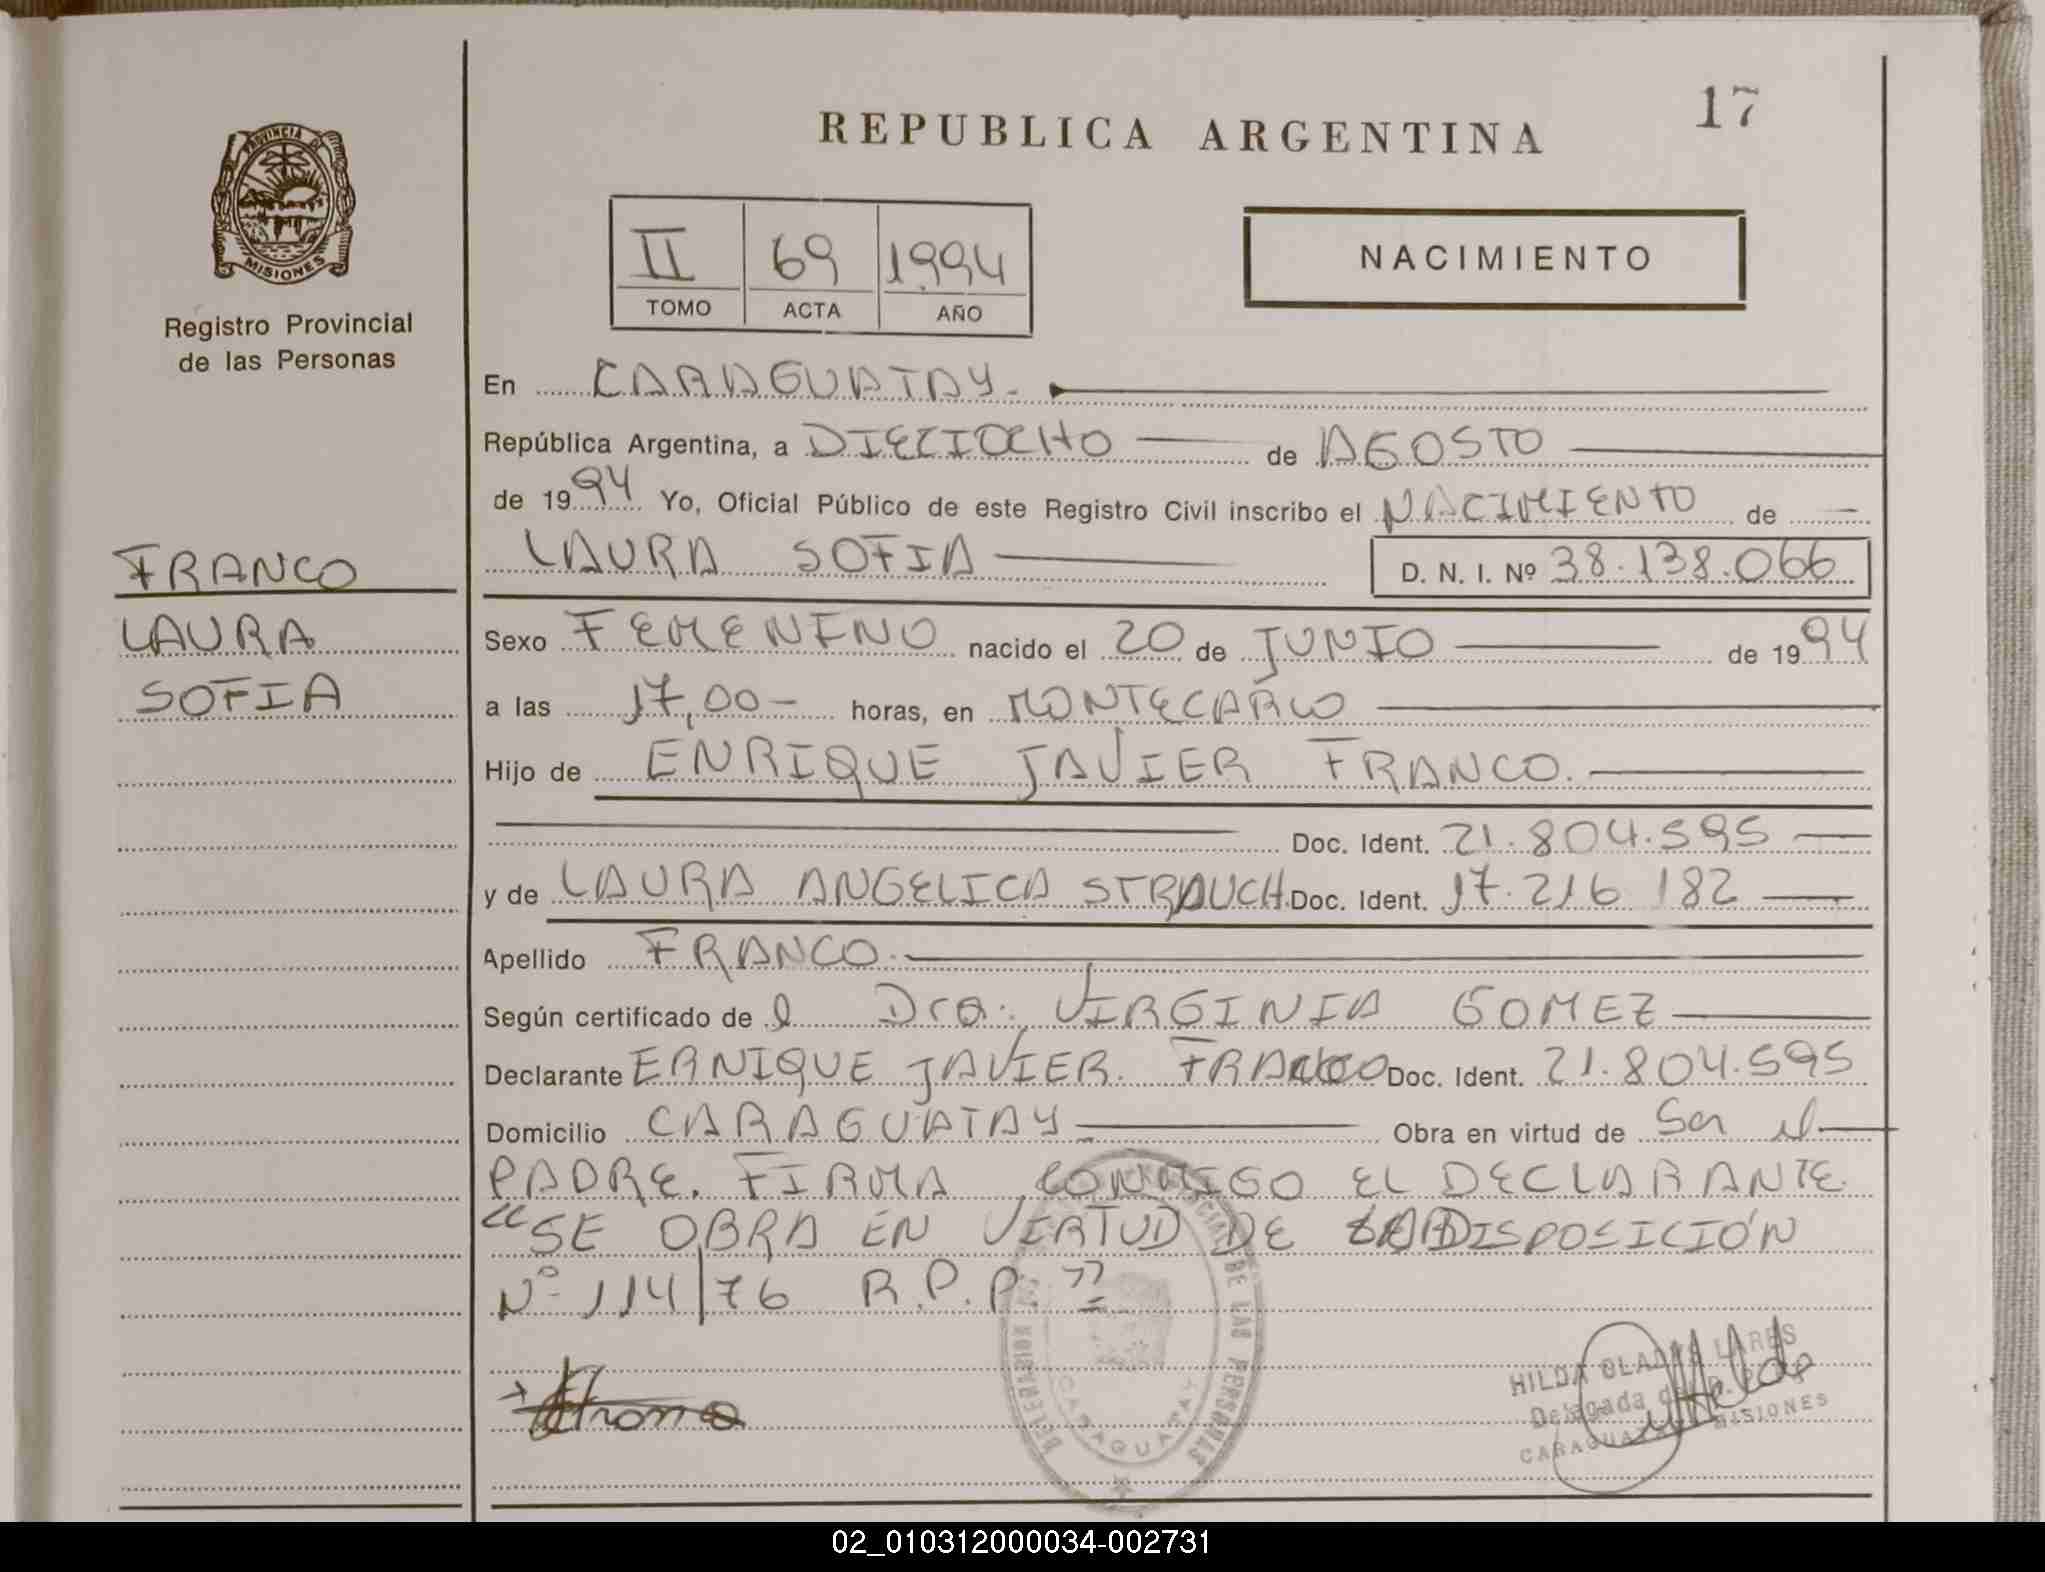 17
REPUBLICA ARGENTINA
PROVINCIA DE
MISIONES
Registro Provincial
de las Personas
II 69 1994
TOMO ACTA AÑO
NACIMIENTO
En CARAGUATAY.
República Argentina, a DIECIOCHO de AGOSTO
de 1994 Yo, Oficial Público de este Registro Civil inscribo el NACIMIENTO de
LAURA SOFIA D. N. I. Nº 38.138.066
FRANCO
LAURA
SOFIA
Sexo FEMENINO nacido el 20 de JUNIO de 1994
a las 17,00 horas, en MONTECARLO
Hijo de ENRIQUE JAVIER FRANCO.
Doc. Ident. 21.804.595
y de LAURA ANGELICA STRAUCH Doc. Ident. 17.216 182
Apellido FRANCO
Según certificado de l Dra: VIRGINIA GOMEZ
Declarante ERNIQUE JAVIER FRANCO Doc. Ident. 21.804.595
Domicilio CARAGUATAY Obra en virtud de Ser el
PADRE. FIRMA CONMIGO EL DECLARANTE
"SE OBRA EN VIRTUD DE LA DISPOSICIÓN
Nº 114/76 R.P.P."
DE LAS PERSONAS
CARAGUATAY
HILDA GLADYS LARES
Delegada del R. P.
CARAGUATAY MISIONES
02_010312000034-002731